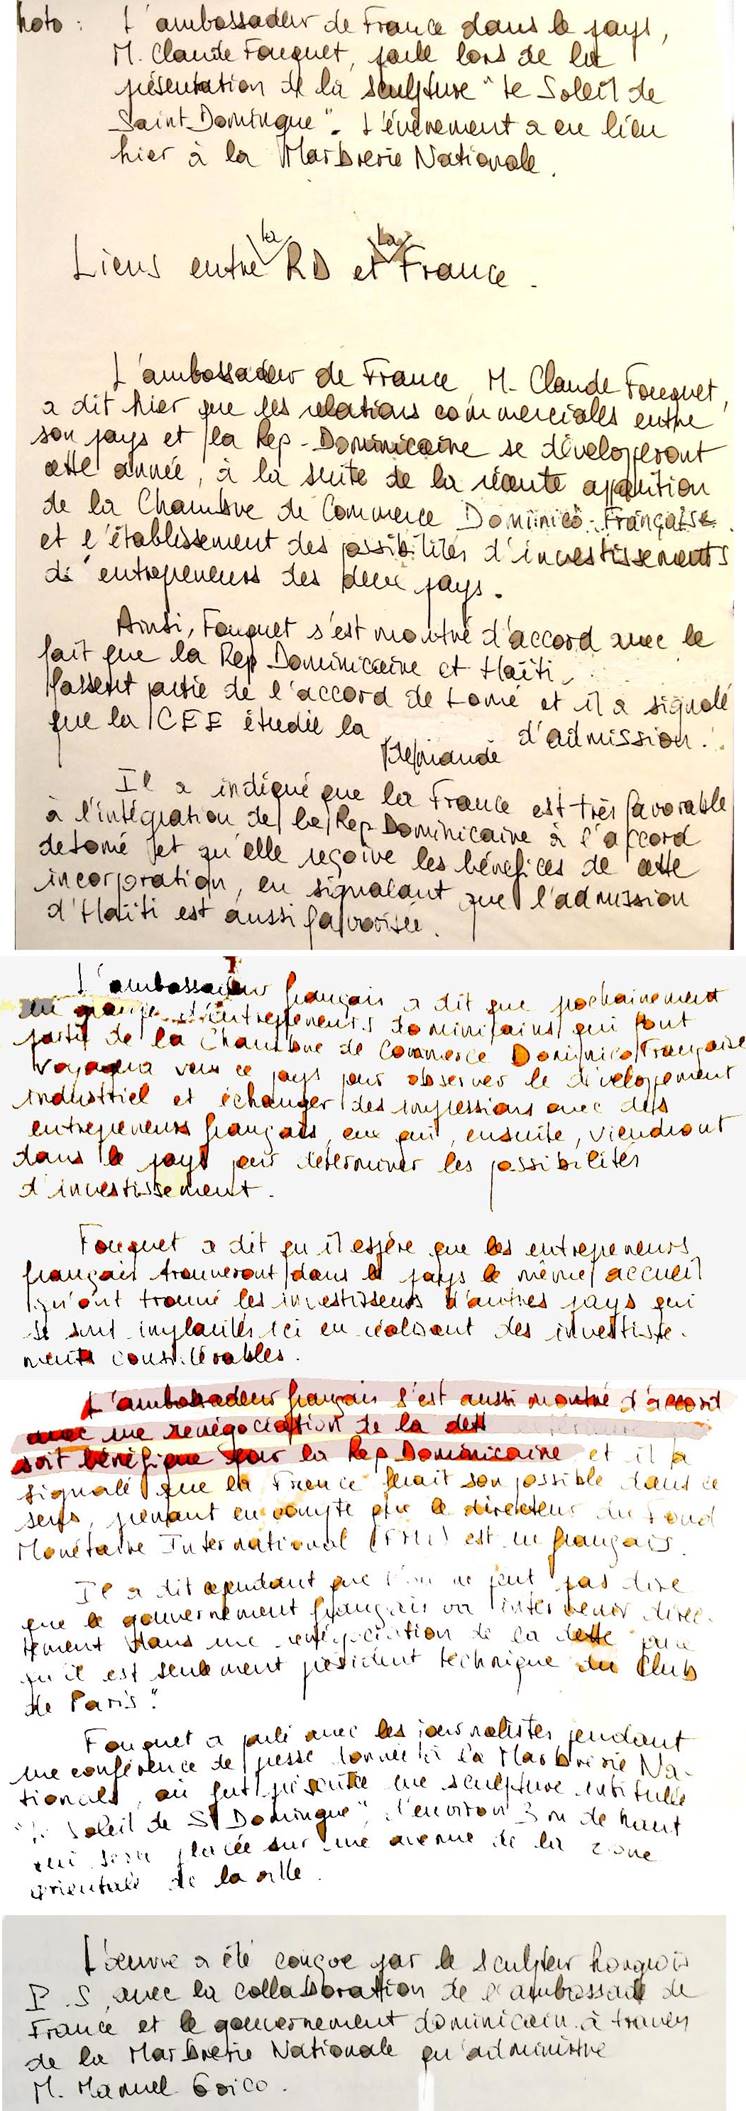 hoto : L'ambassadeur de France dans le pays,
M. Claude Fouquet, parle lors de la
présentation de la sculpture "Le Soleil de
Saint Domingue". L'événement a eu lieu
hier à la Marbrerie Nationale.
Liens entre la RD et la France.
L'ambassadeur de France, M. Claude Fouquet,
a dit hier que les relations commerciales entre
son pays et la Rep. Dominicaine se développeront
cette année, à la suite de la récente apparition
de la Chambre de Commerce Dominico-Française
et l'établissement des possibilités d'investissements
d'entrepeneurs des deux pays.
Ainsi, Fouquet s'est montré d'accord avec le
fait que la Rep Dominicaine et Haïti
fassent partie de l'accord de Lomé et il a signalé
que la CEE étudie la demande d'admission.
Il a indiqué que la France est très favorable
à l'intégration de la Rep Dominicaine à l'accord
de Lomé et qu'elle reçoive les bénéfices de cette
incorporation, en signalant que l'admission
d'Haïti est aussi favorisée.
L'ambassadeur français a dit que prochainement
un groupe d'entrepeneurs dominicains qui font
partie de la Chambre de Commerce Dominico Française
voyagera vers ce pays pour observer le développement
industriel et échanger des impressions avec des
entrepeneurs français, eux qui, ensuite, viendront
dans le pays pour déterminer les possibilités
d'investissement.
Fouquet a dit qu'il espère que les entrepeneurs
français trouveront dans le pays le même accueil
qu'ont trouvé les investisseurs d'autres pays qui
se sont implantés ici en réalisant des investisse-
ments considérables.
L'ambassadeur français s'est aussi montré d'accord
avec une renégociation de la dette
soit bénéfique pour la Rep Dominicaine et il a
signalé que la France ferait son possible dans ce
sens, prenant en compte que le directeur du Fond
Monétaire International (FMI) est un français.
Il a dit cependant que l'on ne peut pas dire
que le gouvernement français va intervenir direc-
tement dans une renégociation de la dette parce
qu'il est seulement président technique du Club
de Paris".
Fouquet a parlé avec les journalistes pendant
une conférence de presse donnée à la Marbrerie Na-
tionale, où fut présentée une sculpture intitulée
"Le Soleil de St Domingue", d'environ 3 m de haut
qui sera placée sur une avenue de la zone
orientale de la ville.
L'œuvre a été conçue par le sculpteur hongrois
P. S, avec la collaboration de l'ambassade de
France et le gouvernement dominicain à travers
de la Marbrerie Nationale qu'administre
M. Manuel Goico.